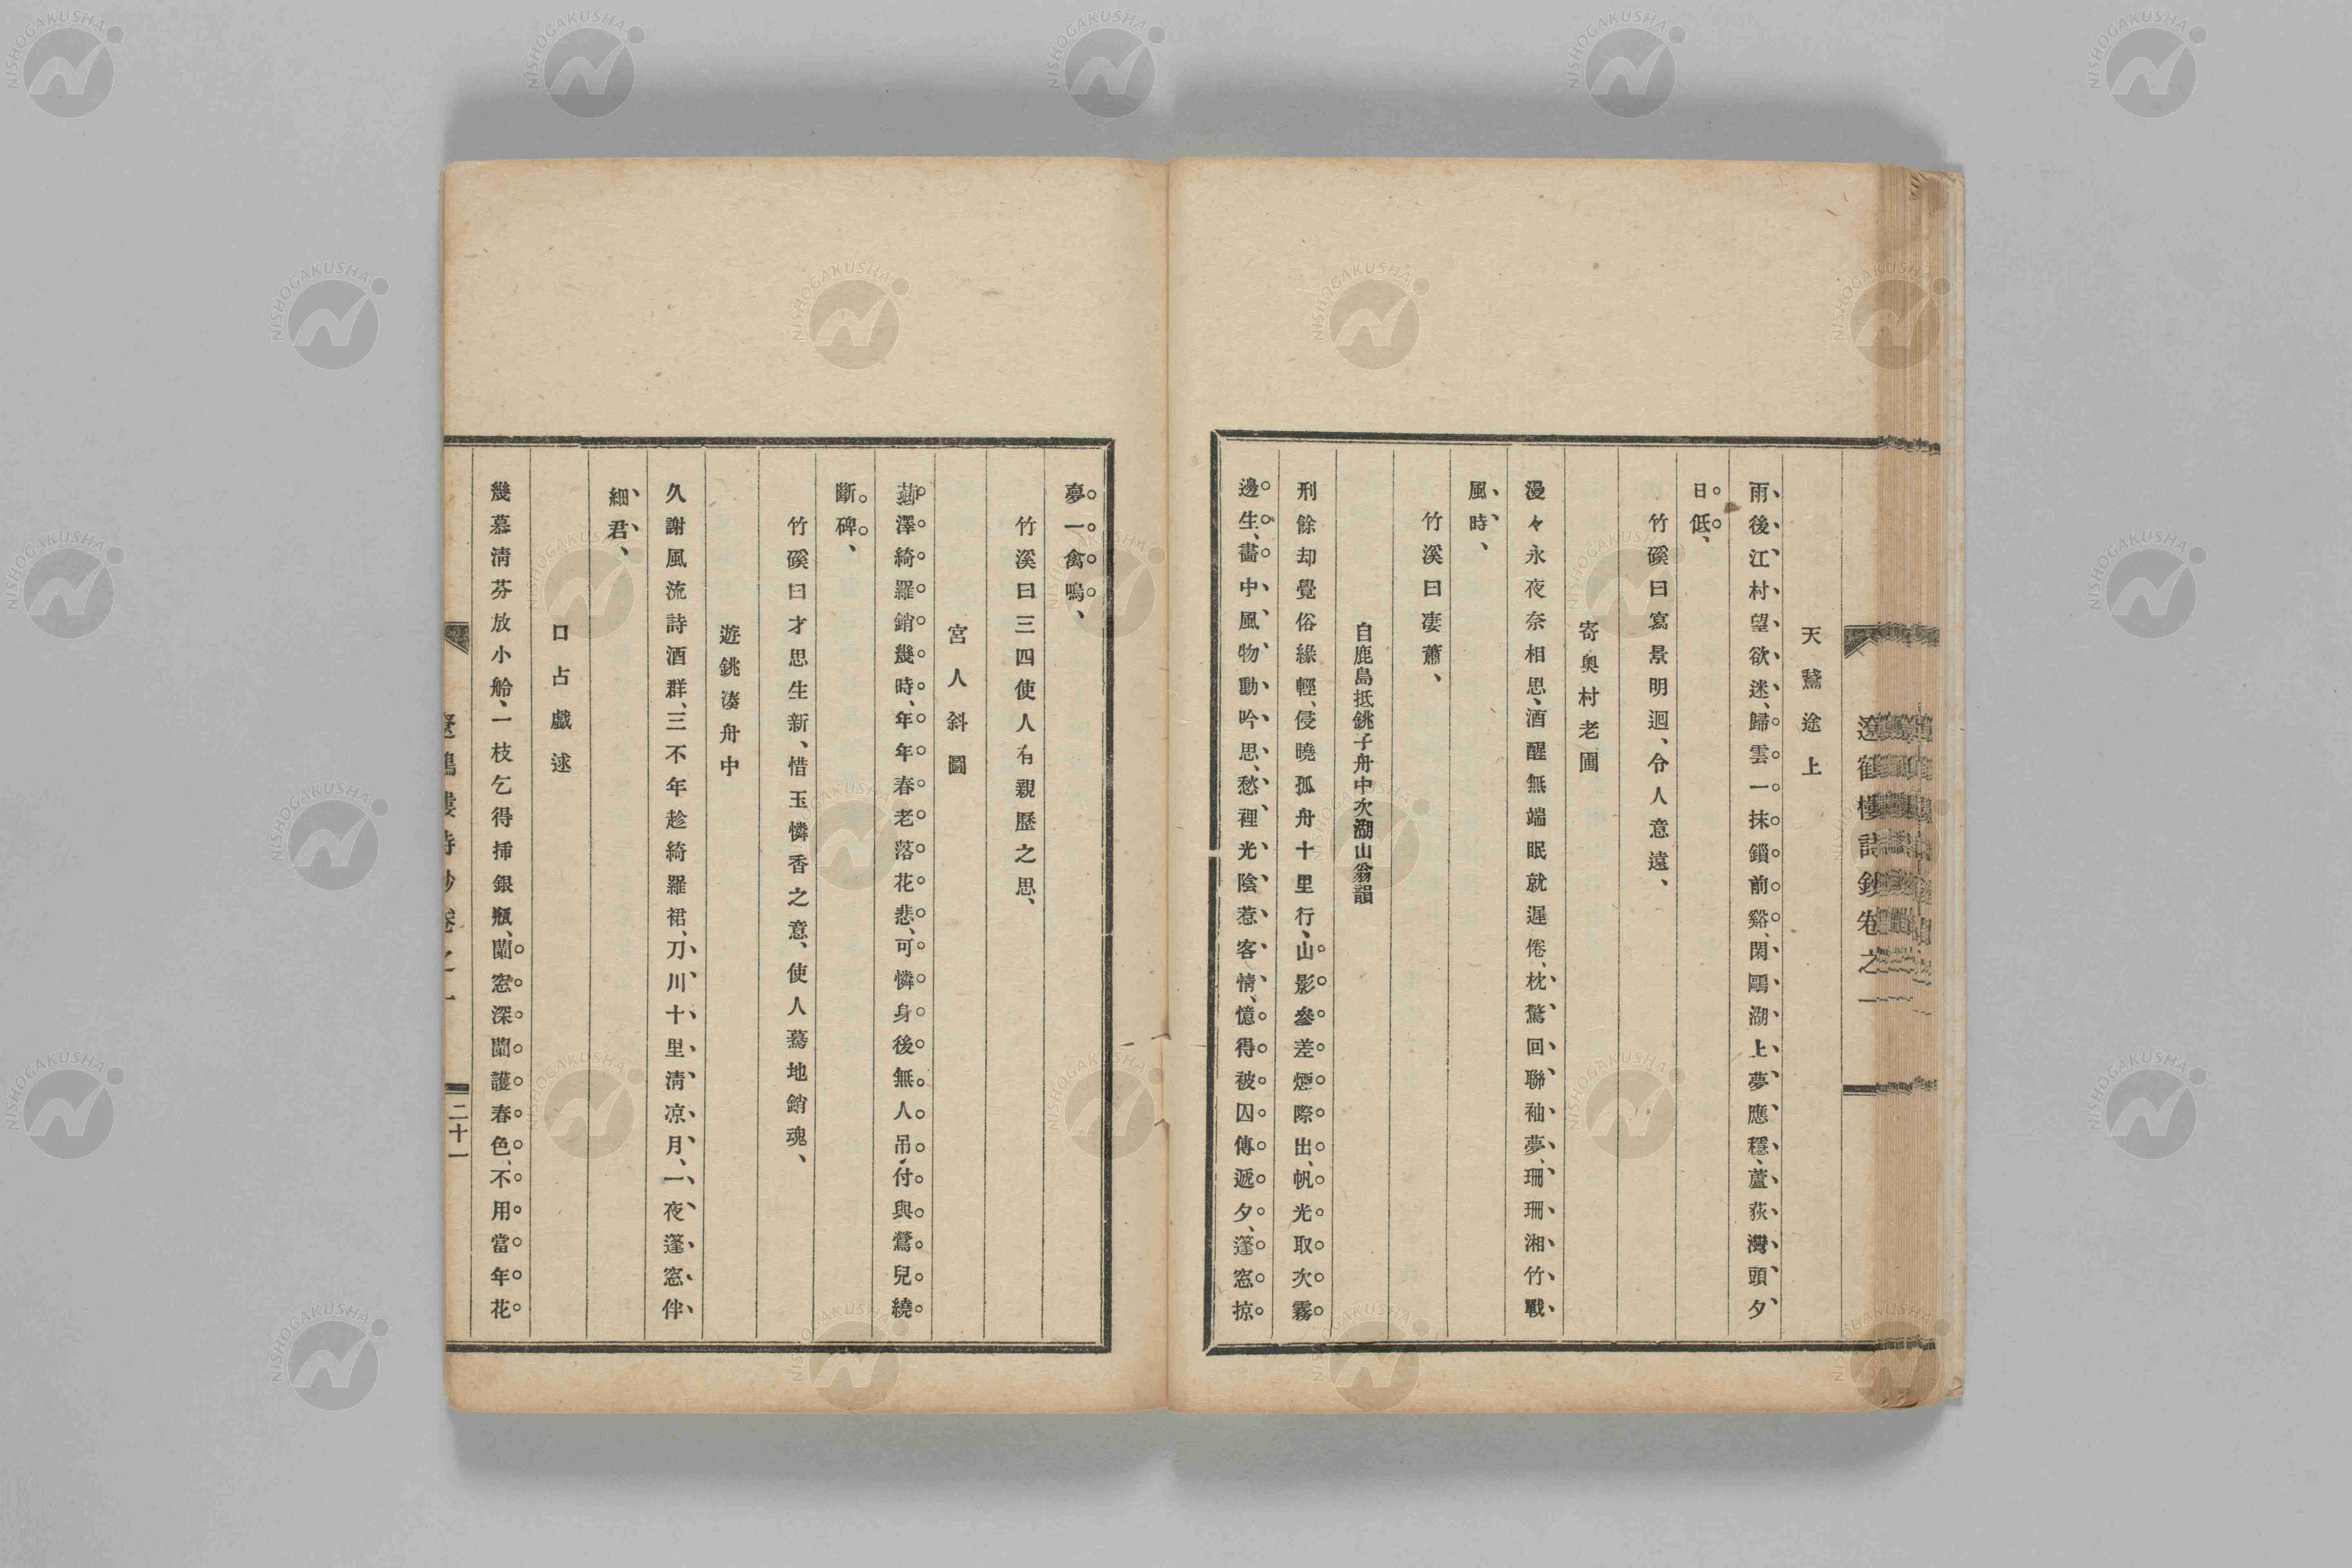 遼鶴樓詩鈔卷之一
天鵞途上
雨後江村望欲迷、歸雲一抹鎖前谿、閑鷗湖上夢應穩、蘆荻灣頭夕
日低、
竹磎曰寫景明迥、令人意遠、
寄奥村老圃
漫々永夜奈相思、酒醒無端眠就遲倦、枕驚回聯袖夢、珊珊湘竹戰
風時、
竹溪曰凄蕭、
自鹿島抵銚子舟中次湖山翁韻
刑餘却覺俗緣輕、侵曉孤舟十里行、山影參差煙際出、帆光取次霧
邊生、畵中風物動吟思、愁裡光陰惹客情、憶得被囚傳遞夕、篷窓掠
夢一禽鳴、
竹溪曰三四使人有親歷之思、
宮人斜圖
薌澤綺羅銷幾時、年年春老落花悲、可憐身後無人吊、付與鶯兒繞
斷碑、
竹磎曰才思生新、惜玉憐香之意、使人驀地銷魂、
遊銚湊舟中
久謝風流詩酒群、三不年趁綺羅裙、刀川十里淸凉月、一夜篷窓伴
細君、
口占戯述
幾慕淸芬放小舲、一枝乞得揷銀瓶、蘭窓深闌護春色、不用當年花
二十一